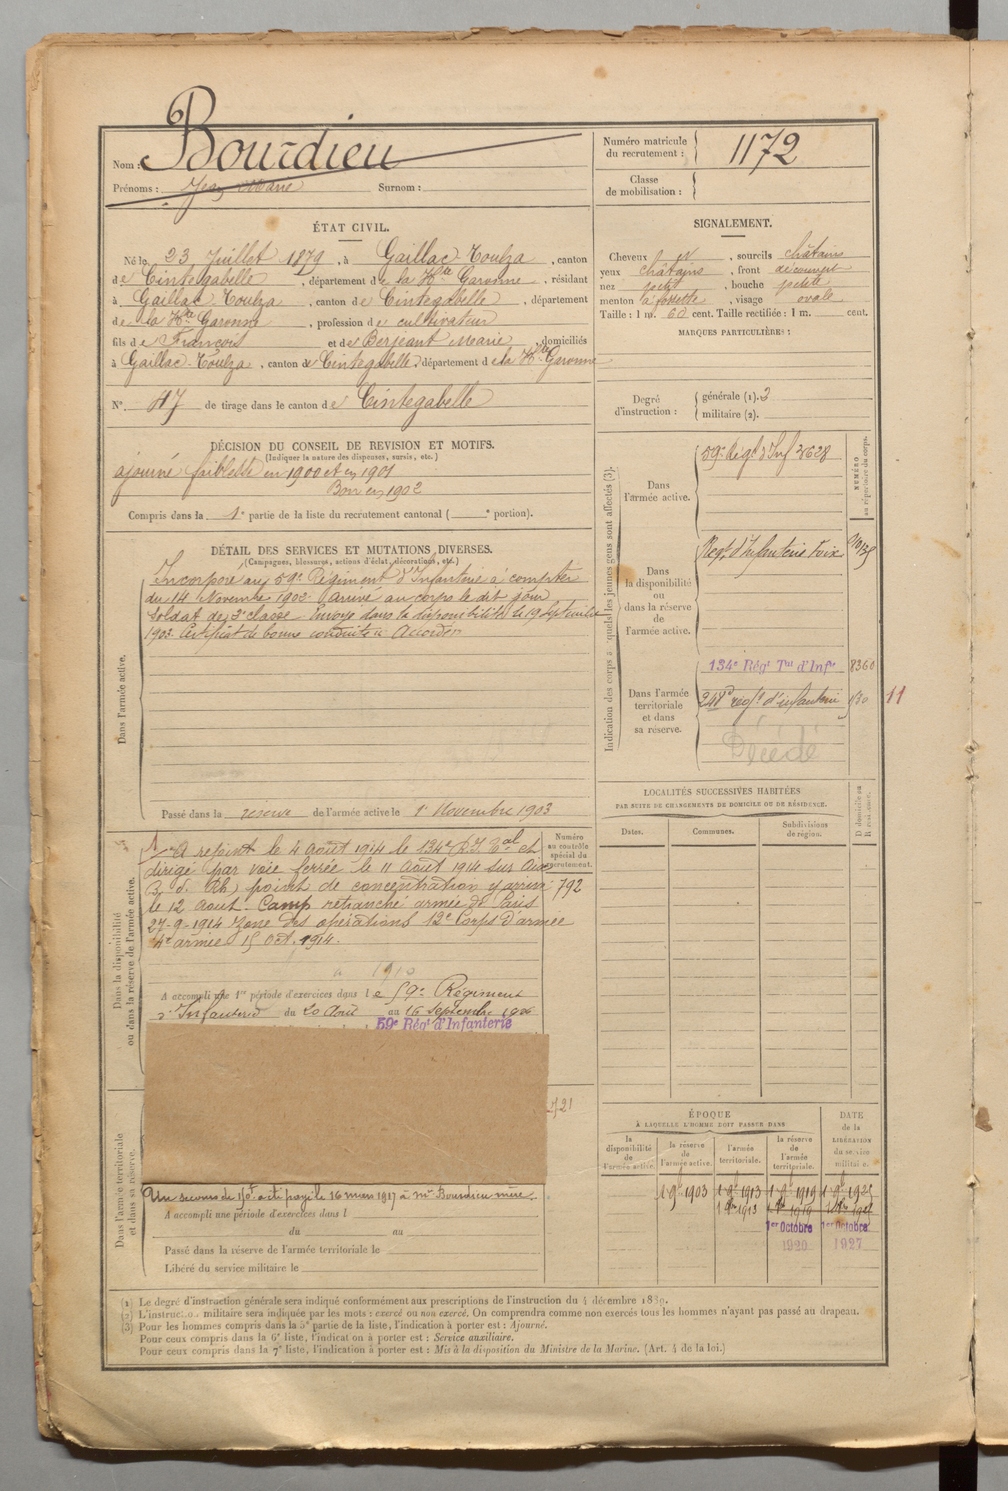 Nom : Bourdieu
Prénoms : Jean Marie Surnom :
Numéro matricule
du recrutement : 1172
Classe
de mobilisation :
ÉTAT CIVIL.
Né le 23 Juillet 1879, à Gaillac-Toulza, canton
de Cintegabelle, département de la Hte Garonne, résidant
à Gaillac-Toulza, canton de Cintegabelle, département
de la Hte Garonne, profession de cultivateur
fils de François et de Berjeant Marie, domiciliés
à Gaillac-Toulza, canton de Cintegabelle, département de la Hte Garonne
N° 47 de tirage dans le canton de Cintegabelle
SIGNALEMENT.
Cheveux N, sourcils châtains
yeux châtains, front découvert
nez petit, bouche petite
menton à fossette, visage ovale
Taille : 1 m. 60 cent. Taille rectifiée : 1 m. cent.
MARQUES PARTICULIÈRES :
Degré
d'instruction :
générale (1). 3
militaire (2).
DÉCISION DU CONSEIL DE REVISION ET MOTIFS.
(Indiquer la nature des dispenses, sursis, etc.)
ajourné faiblesse en 1900 et en 1901
Bon en 1902
Compris dans la 1e partie de la liste du recrutement cantonal ( e portion).
DÉTAIL DES SERVICES ET MUTATIONS DIVERSES.
(Campagnes, blessures, actions d'éclat, décorations, etc.)
Dans l'armée active.
Incorporé au 59e Régiment d'Infanterie à compter
du 14 Novembre 1902. Arrivé au corps le dit jour
soldat de 2e classe. Envoyé dans la disponibilité le 19 Septembre
1903 Certificat de bonne conduite Accordé
Passé dans la réserve de l'armée active le 1er Novembre 1903
Indication des corps auxquels les jeunes gens sont affectés (3).
NUMÉRO
au répertoire du corps.
Dans
l'armée active.
59e Régt d'Inf 3628
Dans
la disponibilité
ou
dans la réserve
de
l'armée active.
Régt d'Infanterie Foix
Dans l'armée
territoriale
et dans
sa réserve.
134e Régt Tal d'Infie 8360
248e régt d'infanterie
11
Décédé
Dans la disponibilité
ou dans la réserve de l'armée active.
Numéro
au contrôle
spécial du
recrutement.
792
A rejoint le 4 août 1914 le 134e R.I. Tal et
dirigé par voie ferrée le 11 Août 1914 sur Aix
B. d. Rh, point de concentration y arrive
le 12 aout. Camp retranché armée de Paris
27-9-1914 Zone des opérations 12e Corps d'armée
4e armée 15 Oct. 1914.
1910
A accompli une 1re période d'exercices dans le 59e Régiment
d'Infanterie du 20 Août au 16 Septembre 1906
59e Régt d'Infanterie
Dans l'armée territoriale
et dans sa réserve.
721
Un secours de 150f a été payé le 16 mars 1917 à Me Bourdieu mère.
A accompli une période d'exercices dans l
du au
Passé dans la réserve de l'armée territoriale le
Libéré du service militaire le
LOCALITÉS SUCCESSIVES HABITÉES
PAR SUITE DE CHANGEMENTS DE DOMICILE OU DE RÉSIDENCE.
Dates. Communes. Subdivisions
de région.
D domicile ou
R résidence.
ÉPOQUE
À LAQUELLE L'HOMME DOIT PASSER DANS
DATE
de la
LIBÉRATION
du service
militaire.
la
disponibilité
de
l'armée active.
la réserve
de
l'armée active.
l'armée
territoriale.
la réserve
de
l'armée
territoriale.
1 9e 1903 1 9e 1913 1 9e 1919 1 9e 1925
1er Octobre 1er Octobre
1920 1927
(1) Le degré d'instruction générale sera indiqué conformément aux prescriptions de l'instruction du 4 décembre 1889.
(2) L'instruction militaire sera indiquée par les mots : exercé ou non exercé. On comprendra comme non exercés tous les hommes n'ayant pas passé au drapeau.
(3) Pour les hommes compris dans la 5e partie de la liste, l'indication à porter est : Ajourné.
Pour ceux compris dans la 6e liste, l'indication à porter est : Service auxiliaire.
Pour ceux compris dans la 7e liste, l'indication à porter est : Mis à la disposition du Ministre de la Marine. (Art. 4 de la loi.)